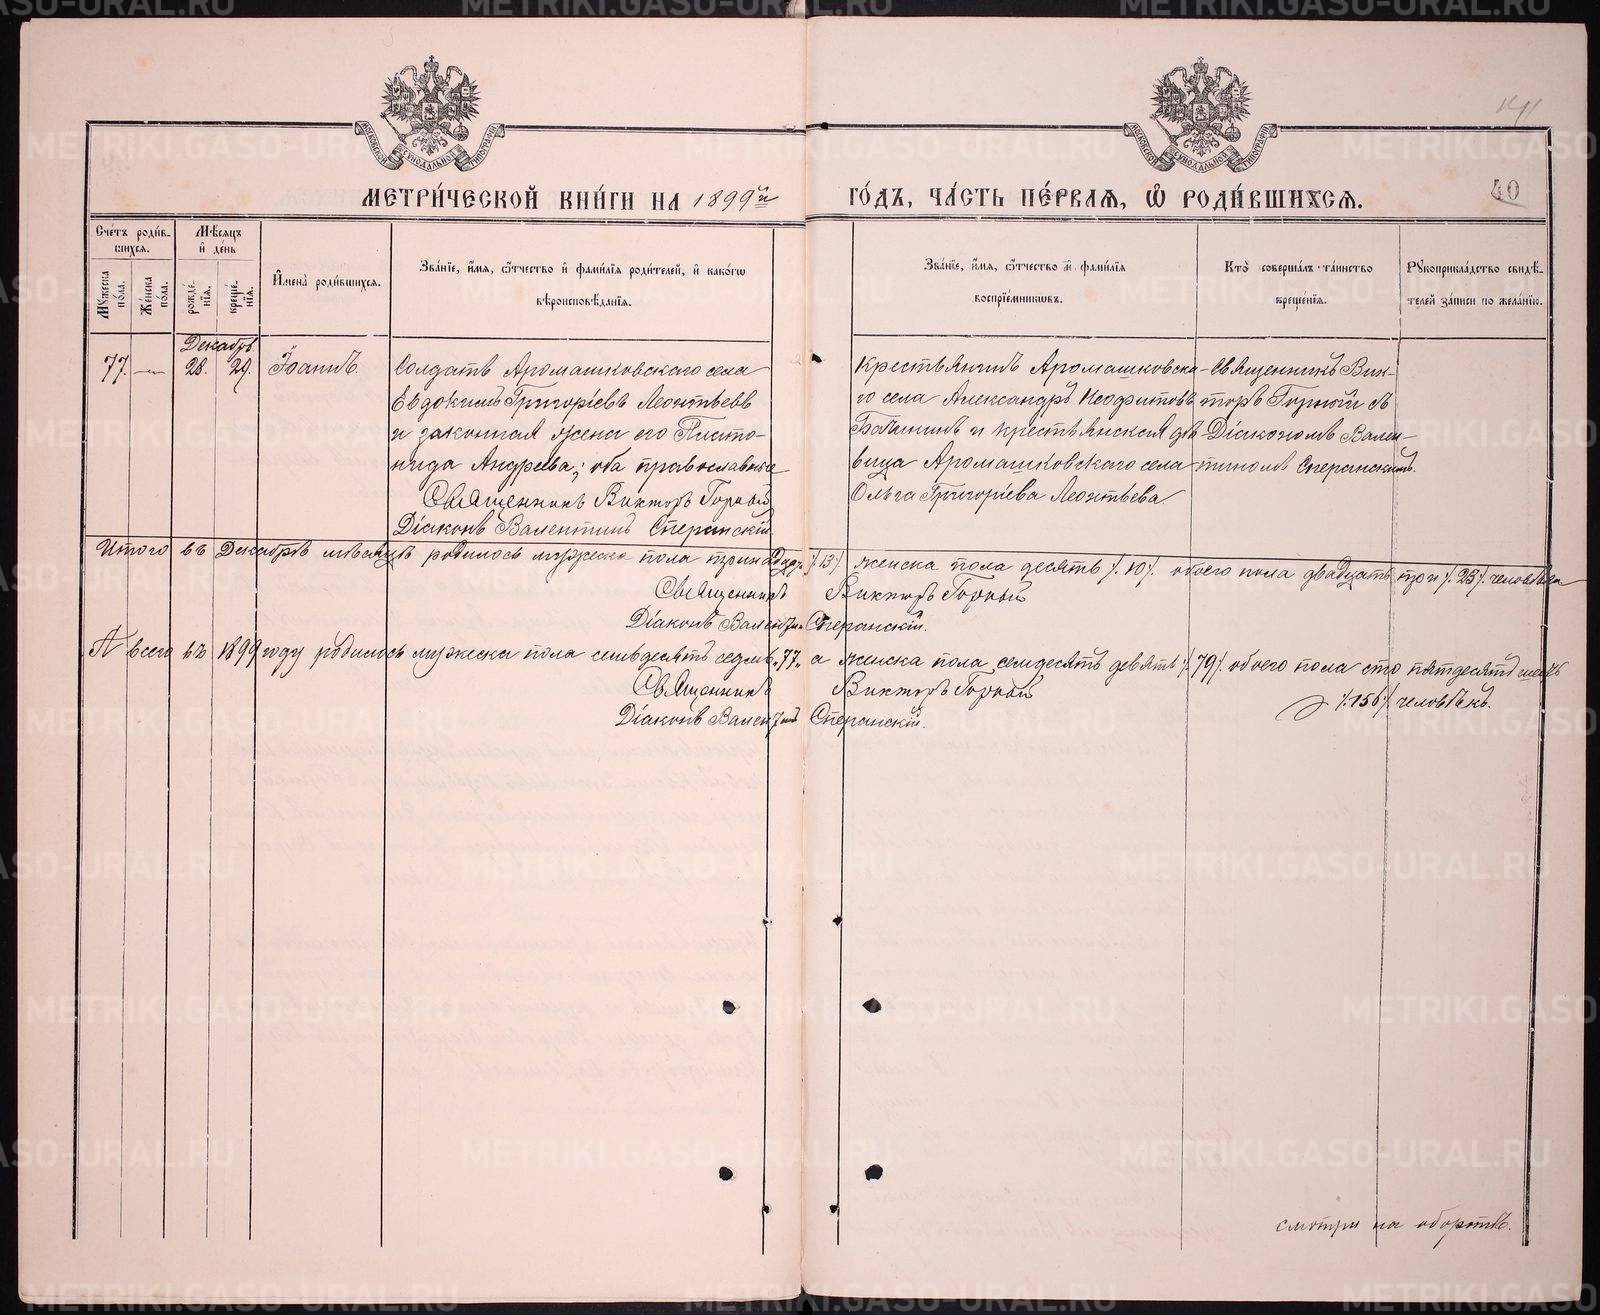 METRIKI.GASO-URAL.RU
МОСКОВСКОЙ СѴНОДАЛЬНОЙ ТИПОГРАФІИ
МОСКОВСКОЙ СѴНОДАЛЬНОЙ ТИПОГРАФІИ
МЕТРИ́ЧЕСКОЙ КНИ́ГИ НА 1899й ГО́ДЪ, ЧА́СТЬ ПЕ́РВАѦ, Ѿ РОДИ́ВШИХСѦ.
40
Сче́тъ роди́в-
шихсѧ.
Мꙋ́жеска по́ла.
Же́нска по́ла.
Мѣ́сѧцъ и҆ де́нь
рожде́-нїѧ.
креще́-нїѧ.
И҆мена̀ роди́вшихсѧ.
Зва́нїе, и҆́мѧ, ѻ҆́тчество и҆ фами́лїѧ роди́телей, и҆ како́гѡ
вѣроисповѣ́данїѧ.
Зва́нїе, и҆́мѧ, ѻ҆́тчество и҆ фами́лїѧ
воспрїе́мникѡвъ.
Кто̀ соверша́лъ та́инство
креще́нїѧ.
Рꙋкоприкла́дство свидѣ́-
телей за́писи по жела́нїю.
Декабрь
77. — 28. 29. Іоаннъ.
Солдатъ Аромашковскаго села
Евдокимъ Григоріевъ Леонтьевъ
и законная жена его Плато-
нида Андреева; оба православные
Священникъ Викторъ Горный
Діаконъ Валентинъ Сперанскій.
Крестьянинъ Аромашковска-
го села Александръ Неофитовъ
Бачининъ и крестьянская дѣ-
вица Аромашковскаго села
Ольга Григоріева Леонтьева
Священникъ Вик-
торъ Горный съ
Діакономъ Вален-
тиномъ Сперанскимъ.
Итого въ Декабрѣ мѣсяцѣ родилось мужеска пола тринадцать /13/ женска пола десять /10/. обоего пола двадцать три /23/ человѣка
Священникъ Викторъ Горный
Діаконъ Валентинъ Сперанскій.
А всего въ 1899 году родилось мужеска пола семьдесятъ седмь „77„ а женска пола семдесятъ девять /79/. обоего пола сто пятдесятъ шесть
/156/ человѣкъ.
Священникъ Викторъ Горный
Діаконъ Валентинъ Сперанскій.
смотри на оборотѣ.